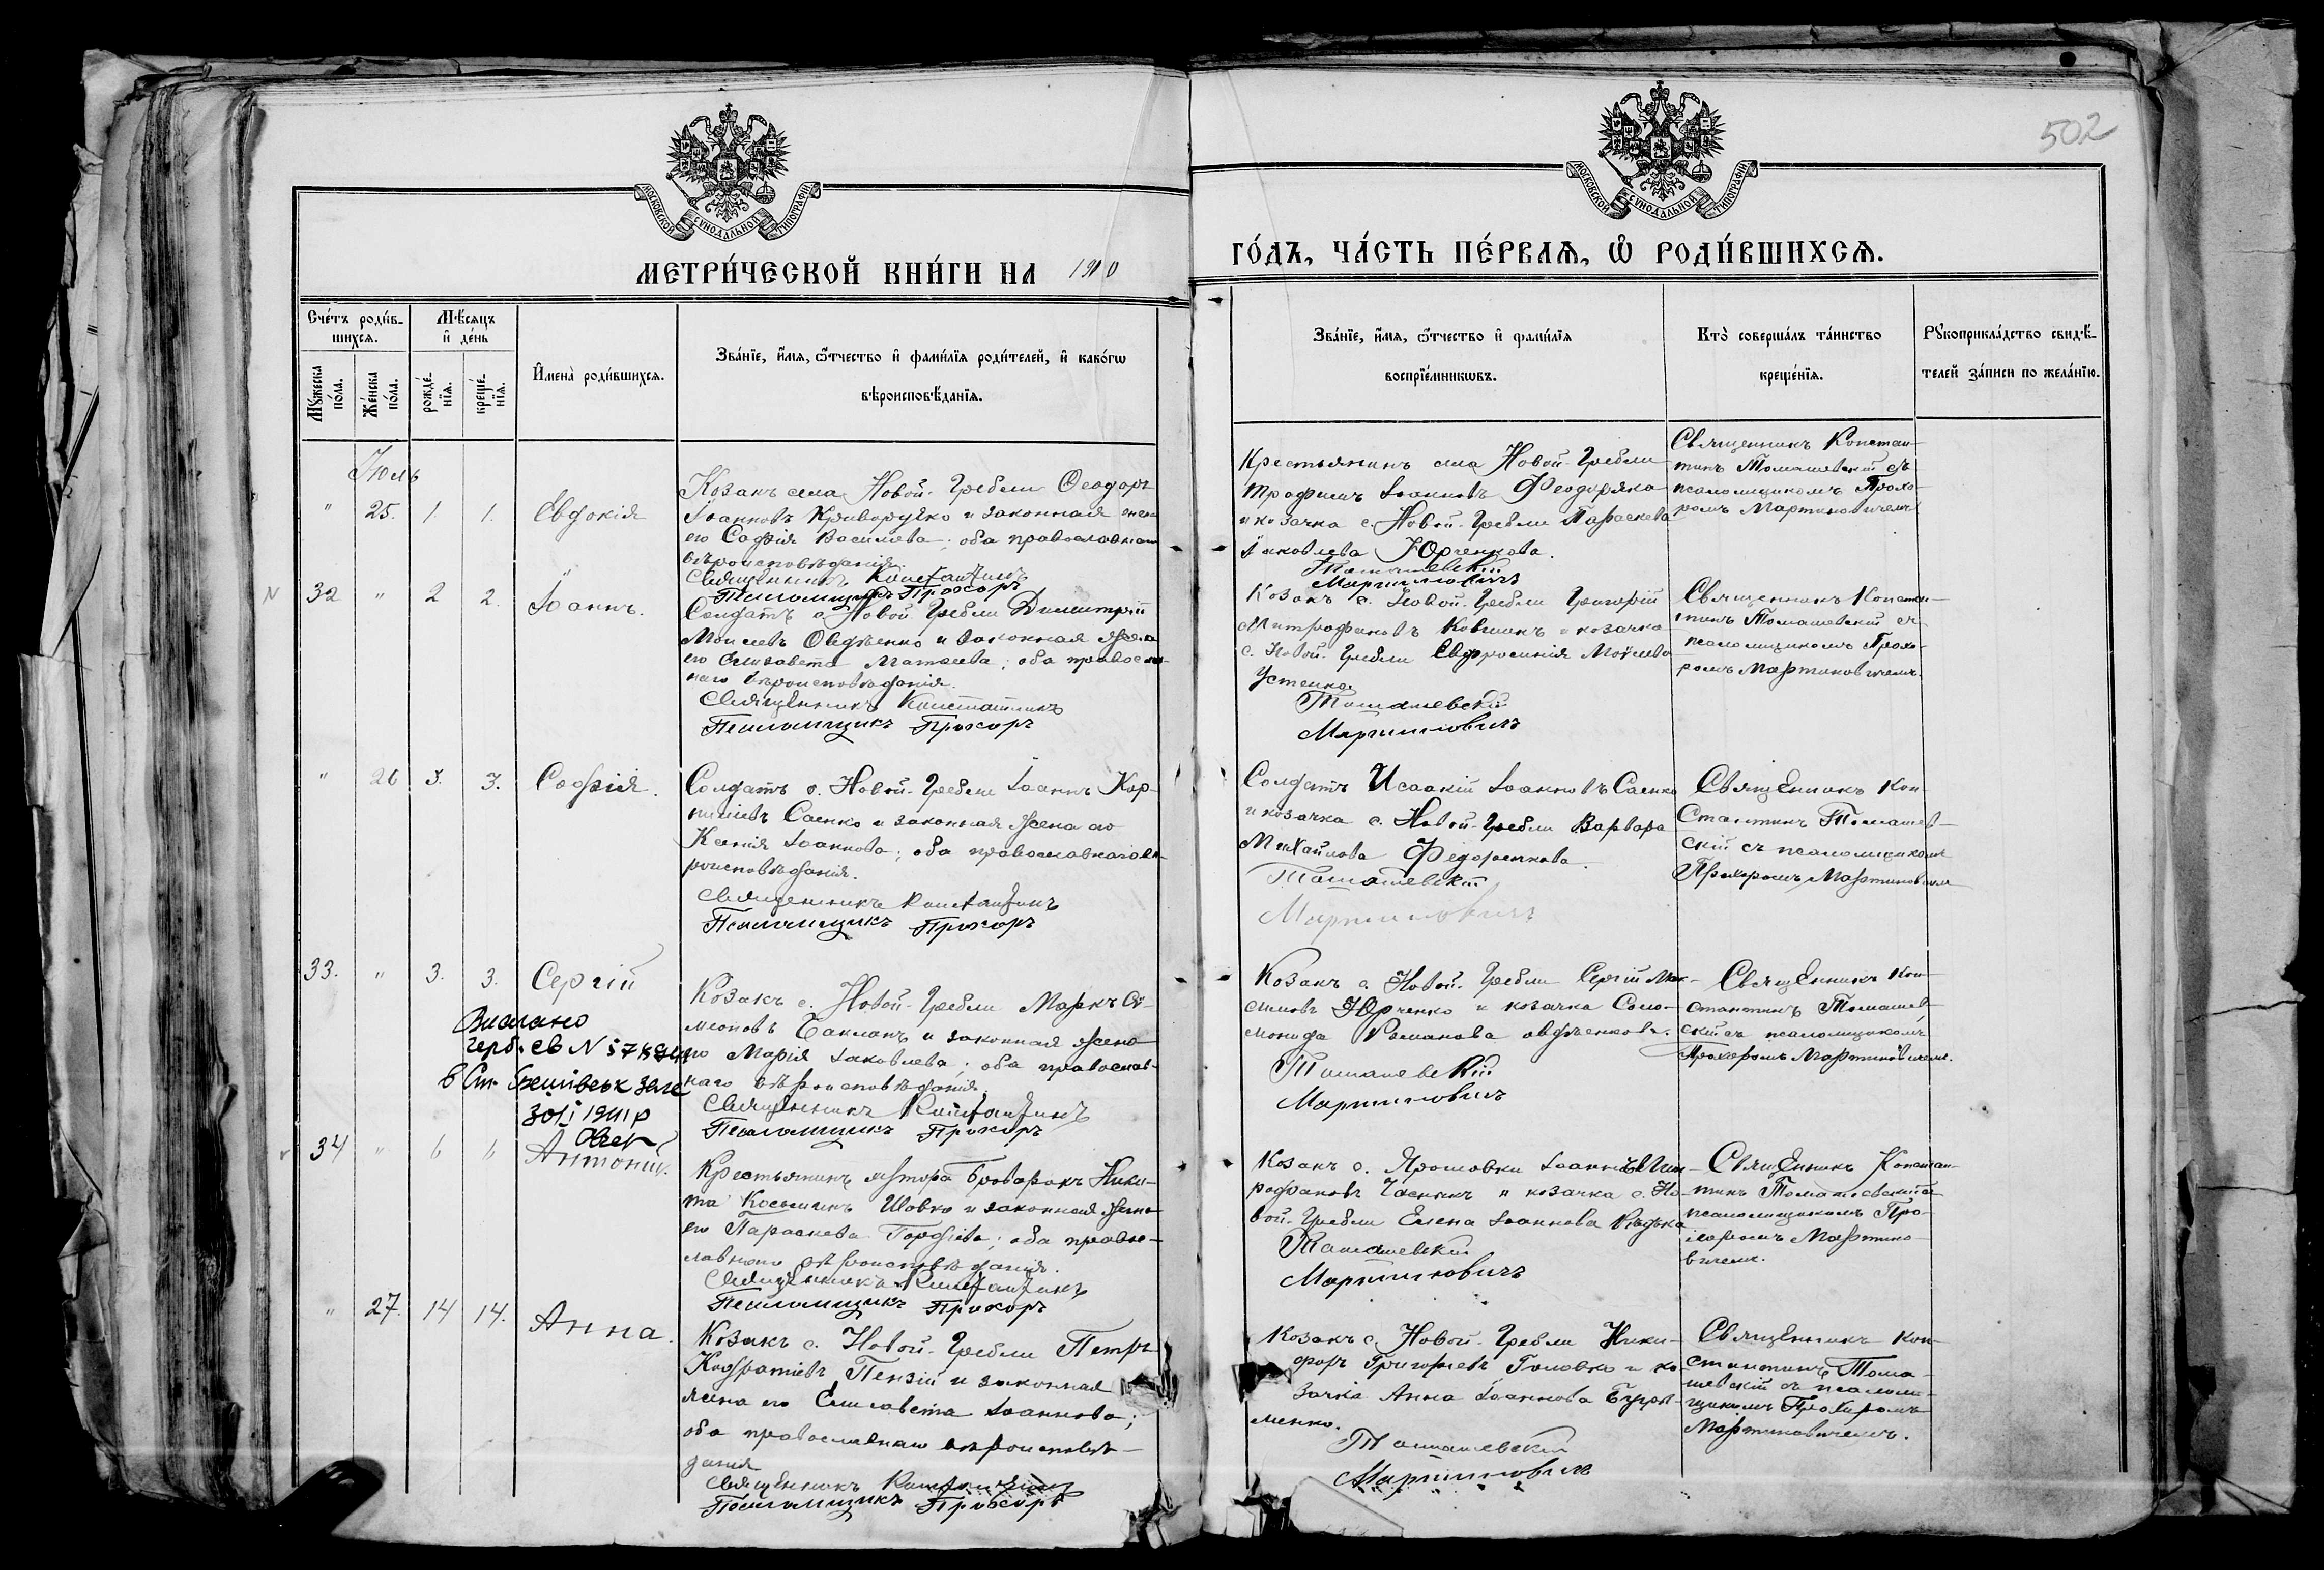 502
МОСКОВСКОЙ СУНОДАЛЬНОЙ ТИПОГРАФІИ
МОСКОВСКОЙ СУНОДАЛЬНОЙ ТИПОГРАФІИ
МЕТРИ́ЧЕСКОЙ КНИ́ГИ НА 1910
ГО́ДЪ, ЧА́СТЬ ПЕ́РВАЯ, Ѽ РОДИ́ВШИХСЯ.
Сче́тъ роди́в-
шихся.
Мѣ́сяцъ
и҆ де́нь
Му́жеска
по́ла.
Же́нска
по́ла.
рожде́-
нїя.
креще́-
нїя.
И҆мена̀ роди́вшихся.
Зва́нїе, и҆́мя, ѻ҆́тчество и҆ фами́лїя роди́телей, и҆ како́гѡ
вѣроисповѣ́данїя.
Зва́нїе, и҆́мя, ѻ҆́тчество и҆ фами́лїя
воспрїе́мникѡвъ.
Кто̀ соверша́лъ та́инство
креще́нїя.
Рукоприкла́дство свидѣ́-
телей за́писи по жела́нїю.
Іюль
" 25. 1. 1. Евдокія
Козакъ села Новой-Гребли Ѳеодоръ
Іоанновъ Криворучко и законная жена
его Софія Васильева; оба православнаго
вѣроисповѣданія.
Священникъ Константинъ
Псаломщикъ Прохоръ
Крестьянинъ села Новой-Гребли
Трофимъ Іоанновъ Феодоряка
и козачка с. Новой-Гребли Параскева
Іаковлева Юрченкова.
Томашевскій
Мартиновичъ
Священникъ Констан-
тинъ Томашевскій съ
псаломщикомъ Прохо-
ромъ Мартиновичемъ
32 " 2 2. Іоаннъ.
Солдатъ с. Новой-Гребли Димитрій
Моисеевъ Овдѣенко и законная жена
его Елисавета Матѳеева; оба православ-
наго вѣроисповѣданія.
Священникъ Константинъ
Псаломщикъ Прохоръ
Козакъ с. Новой-Гребли Григорій
Митрофановъ Ковшикъ и козачка
с. Новой-Гребли Евфросинія Моѵсеева
Устенко
Томашевскій
Мартиновичъ
Священникъ Констан-
тинъ Томашевскій съ
псаломщикомъ Прохо-
ромъ Мартиновичемъ.
" 26 3. 3. Софія.
Солдатъ с. Новой-Гребли Іоаннъ Кор-
ниліевъ Саенко и законная жена его
Ксенія Іоаннова; оба православнаго вѣ-
роисповѣданія.
Священникъ Константинъ
Псаломщикъ Прохоръ
Солдатъ Исаакій Іоанновъ Саенко
и козачка с. Новой-Гребли Варвара
Михайлова Федоренкова.
Томашевскій
Мартиновичъ
Священникъ Кон-
стантинъ Томашев-
скій съ псаломщикомъ
Прохоромъ Мартиновичемъ
33. " 3. 3. Сергій
Видано
герб. св N
в Ст.
1941р
Козакъ с. Новой-Гребли Маркъ Сѵ-
меоновъ Бакланъ и законная жена
его Марія Іаковлева; оба православ-
наго вѣроисповѣданія.
Священникъ Константинъ
Псаломщикъ Прохоръ
Козакъ с. Новой-Гребли Сергій Мак-
симовъ Юрченко и козачка Соло-
монида Романова Овдѣенкова.
Томашевскій
Мартиновичъ
Священникъ Кон-
стантинъ Томашев-
скій съ псаломщикомъ
Прохоромъ Мартиновичемъ.
34 " 6 6 Антоній.
Крестьянинъ хутора Броварокъ Ники-
та Косьминъ Шовко и законная жена
его Параскева Гордіева; оба право-
славнаго вѣроисповѣданія.
Священникъ Константинъ
Псаломщикъ Прохоръ
Козакъ с. Ярошовки Іоаннъ Мит-
рофановъ и козачка с. Но-
вой-Гребли Елена Іоаннова
Томашевскій
Мартиновичъ
Священникъ Констан-
тинъ Томашевскій съ
псаломщикомъ Про-
хоромъ Мартино-
вичемъ.
" 27. 14 14. Анна.
Козакъ с. Новой-Гребли Петръ
Кодратіевъ Пензій и законная
жена его Елисавета Іоаннова;
оба православнаго вѣроисповѣ-
данія
Священникъ Константинъ
Псаломщикъ Прохоръ
Козакъ с. Новой-Гребли Ники-
форъ Григорьевъ Головко и ко-
зачка Анна Іоаннова
менко.
Томашевскій
Мартиновичъ
Священникъ Кон-
стантинъ Тома-
шевскій съ псалом-
щикомъ Прохоромъ
Мартиновичемъ.